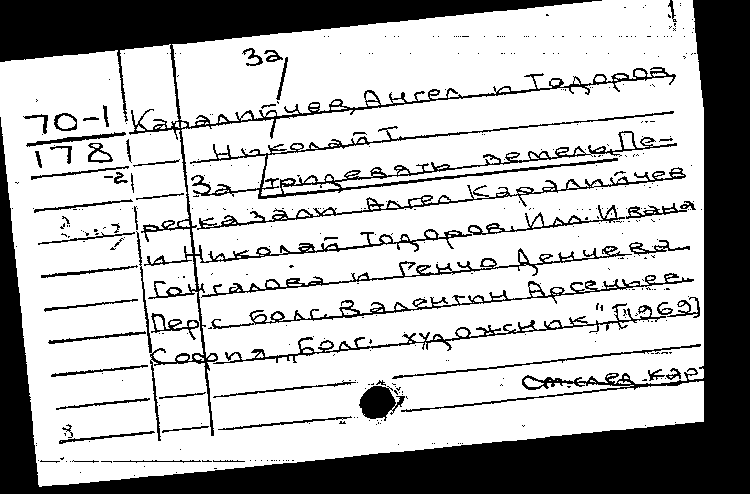 За
70-1 Каралийчев, Ангел и Тодоров,
178 Николай Т.
-2 За тридевять земель. Пе-
ресказали Ангел Каралийчев
и Николай Тодоров. Илл. Ивана
Гонгалова и Генчо Денчева.
Пер. с болг. Валентин Арсеньев.
София, „Болг. художник", [1969]
См. след. карт
8